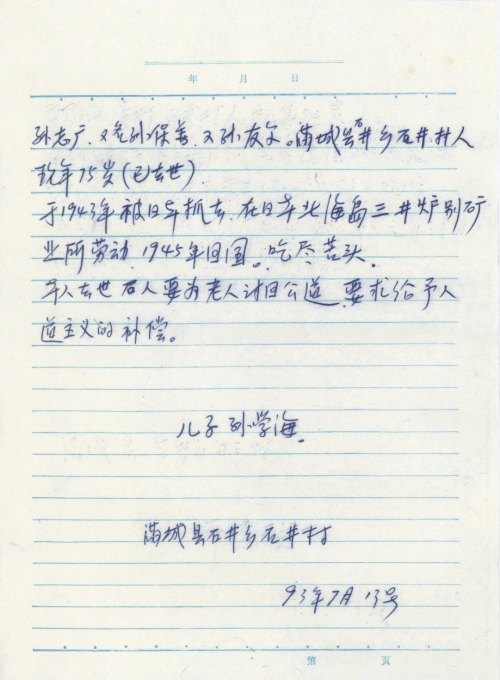 年 月 日
孙志广、又名孙保善、又孙友尔。满城县石井乡石井村人
现年75岁(已去世)
于1943年被日军抓去、在日本北海岛三井炉别矿
业所劳动、1945年回国。吃尽苦头、
本人去世后人要为老人讨回公道、要求给予人
道主义的补偿。
儿子孙学海.
满城县石井乡石井村
93年7月13号
第 页